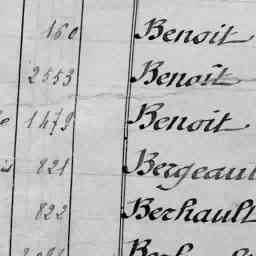 160 Benoit
2553 Benoit
1479 Benoit
821 Bergeault
822 Berhault